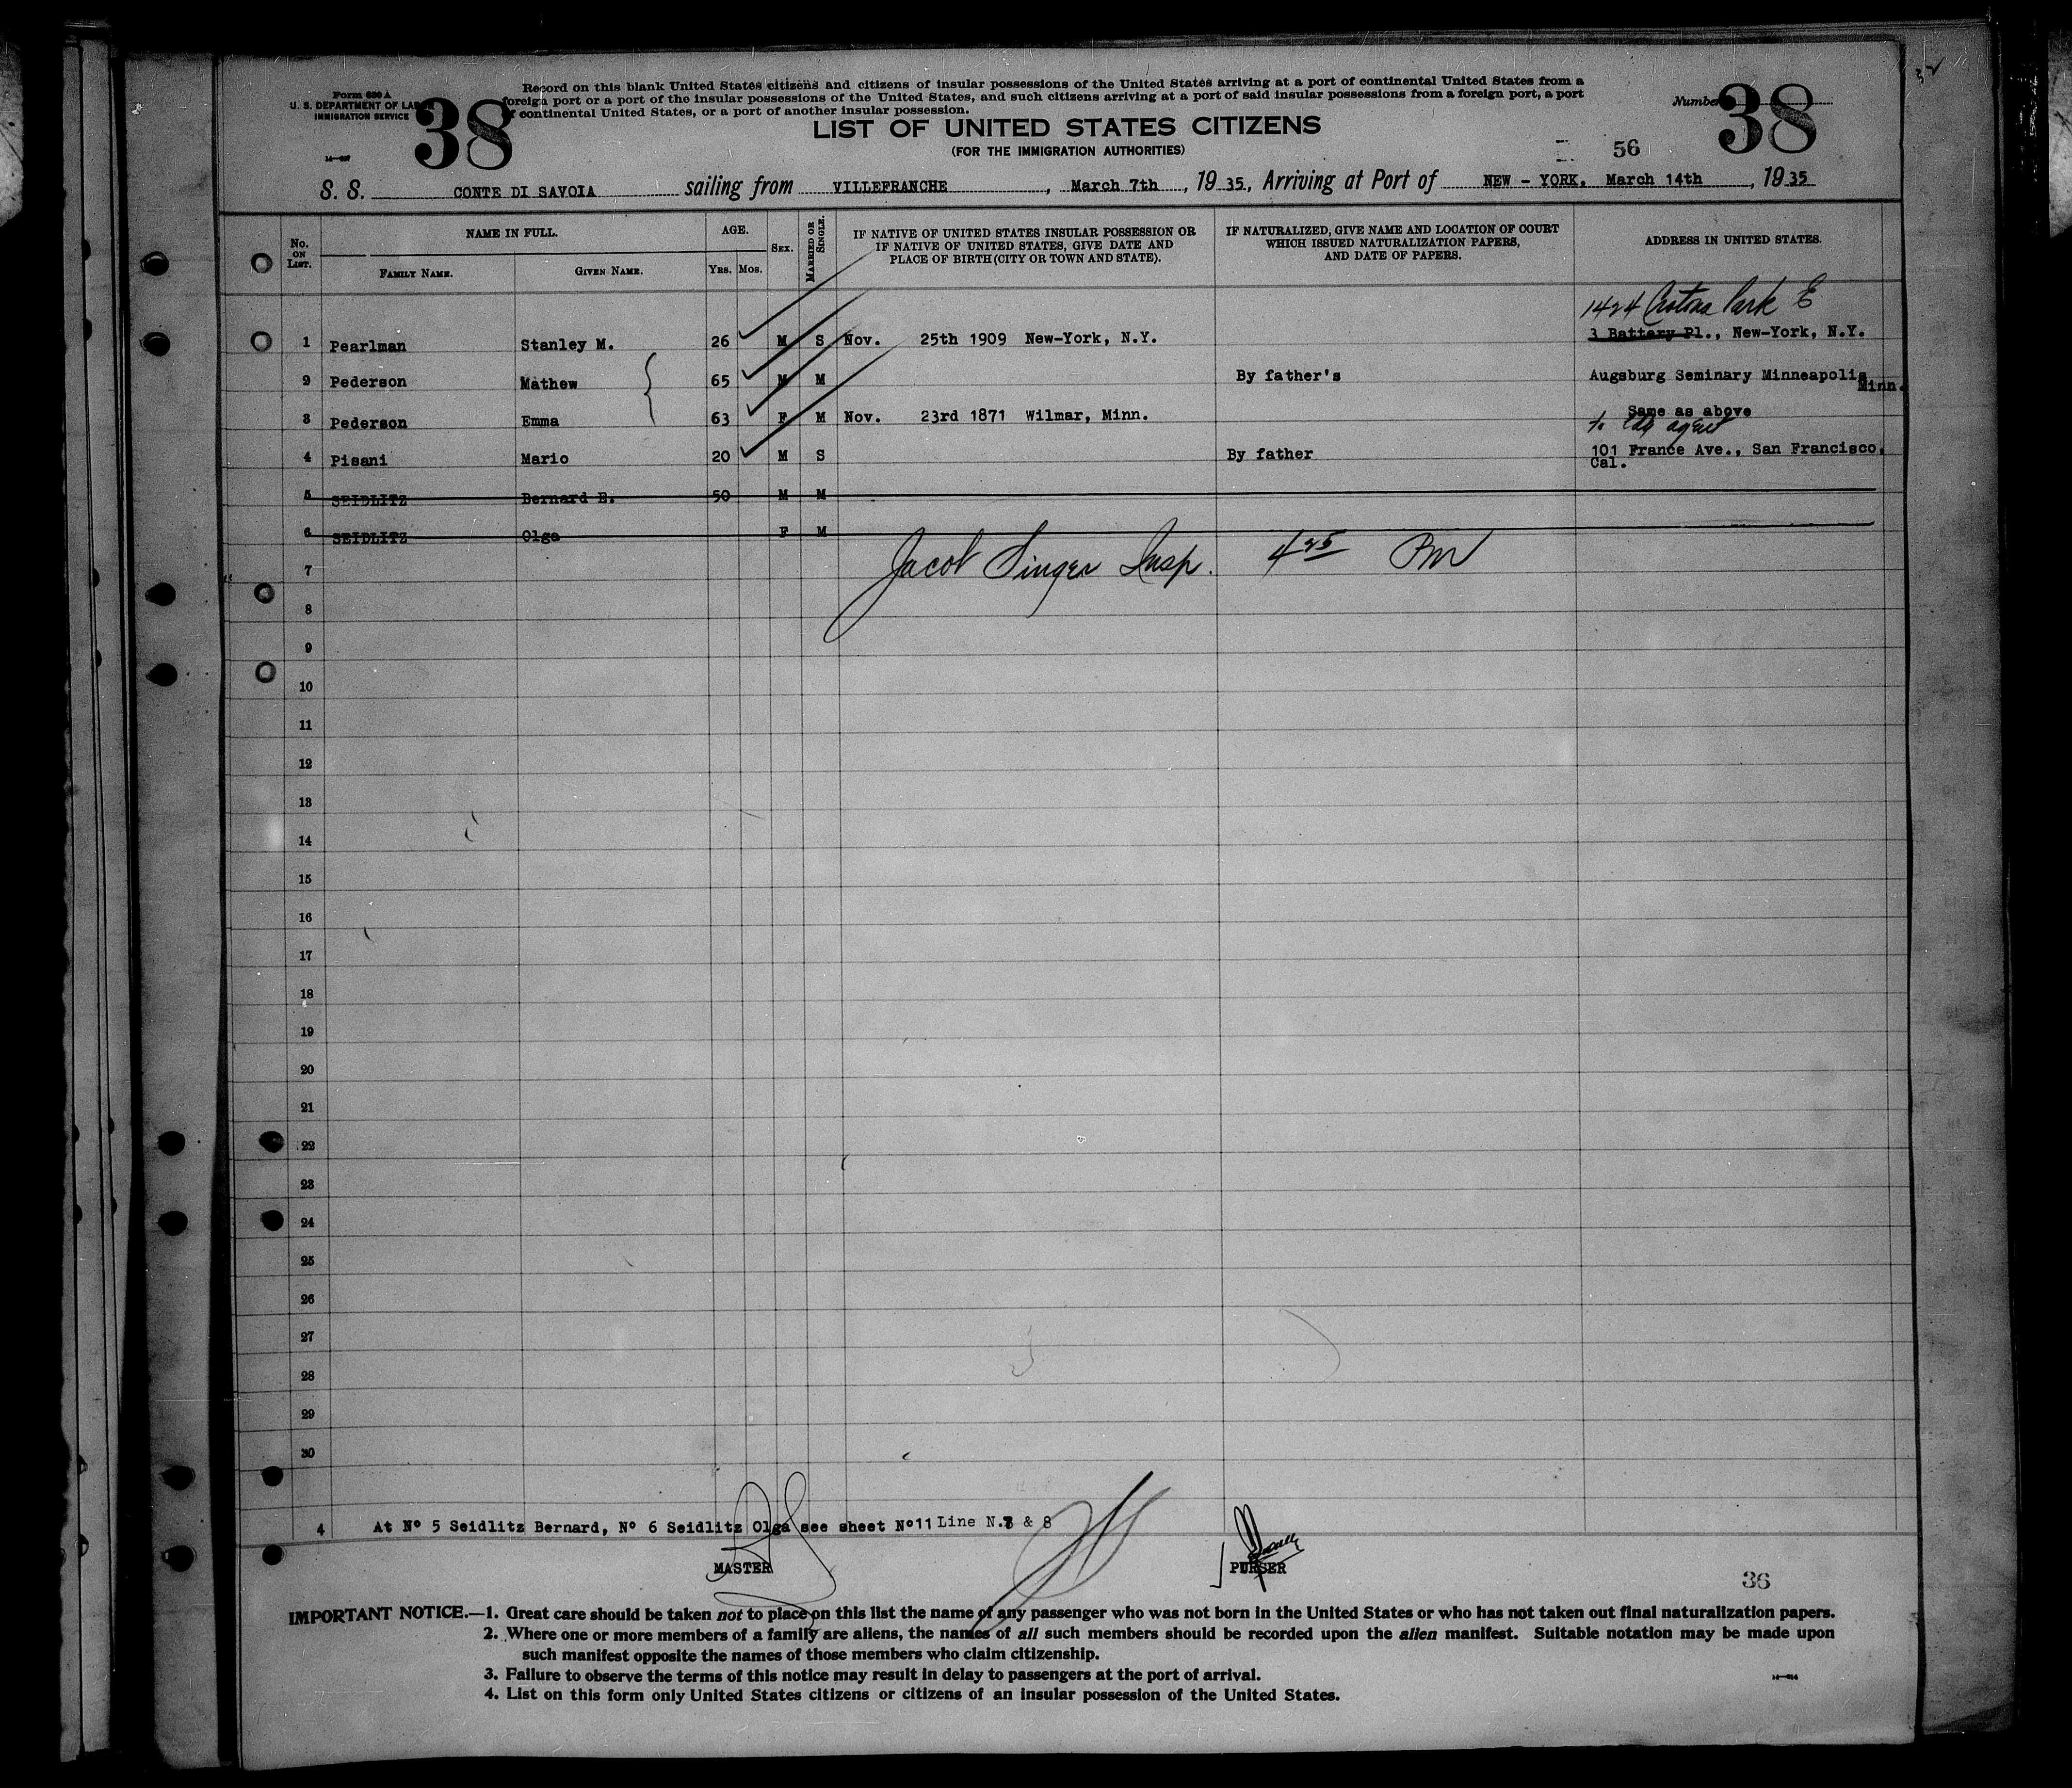 Form 630 A
U. S. DEPARTMENT OF LABOR
IMMIGRATION SERVICE
38
Record on this blank United States citizens and citizens of insular possessions of the United States arriving at a port of continental United States from a
foreign port or a port of the insular possessions of the United States, and such citizens arriving at a port of said insular possessions from a foreign port, a port
of continental United States, or a port of another insular possession.
Number 38
LIST OF UNITED STATES CITIZENS
(FOR THE IMMIGRATION AUTHORITIES)
56
S. S. CONTE DI SAVOIA sailing from VILLEFRANCHE, March 7th, 1935, Arriving at Port of NEW - YORK, March 14th, 1935
No. ON LIST. NAME IN FULL. AGE. SEX. MARRIED OR SINGLE. IF NATIVE OF UNITED STATES INSULAR POSSESSION OR IF NATIVE OF UNITED STATES, GIVE DATE AND PLACE OF BIRTH (CITY OR TOWN AND STATE). IF NATURALIZED, GIVE NAME AND LOCATION OF COURT WHICH ISSUED NATURALIZATION PAPERS, AND DATE OF PAPERS. ADDRESS IN UNITED STATES.
FAMILY NAME. GIVEN NAME. YRS. MOS.
1424 Crotona Park E
1 Pearlman Stanley M. 26 M S Nov. 25th 1909 New-York, N.Y. 3 Battery Pl., New-York, N.Y.
2 Pederson Mathew 65 M M By father's Augsburg Seminary Minneapolis Minn.
3 Pederson Emma 63 F M Nov. 23rd 1871 Wilmar, Minn. Same as above
agent
4 Pisani Mario 20 M S By father 101 France Ave., San Francisco, Cal.
5 SEIDLITZ Bernard E. 50 M M
6 SEIDLITZ Olga F M
Jacob Singer Insp. 4 25 PM
7
8
9
10
11
12
13
14
15
16
17
18
19
20
21
22
23
24
25
26
27
28
29
30
4 At Nº 5 Seidlitz Bernard, Nº 6 Seidlitz Olga see sheet Nº 11 Line N.7 & 8
MASTER PURSER
36
IMPORTANT NOTICE.—1. Great care should be taken not to place on this list the name of any passenger who was not born in the United States or who has not taken out final naturalization papers.
2. Where one or more members of a family are aliens, the names of all such members should be recorded upon the alien manifest. Suitable notation may be made upon
such manifest opposite the names of those members who claim citizenship.
3. Failure to observe the terms of this notice may result in delay to passengers at the port of arrival.
4. List on this form only United States citizens or citizens of an insular possession of the United States.